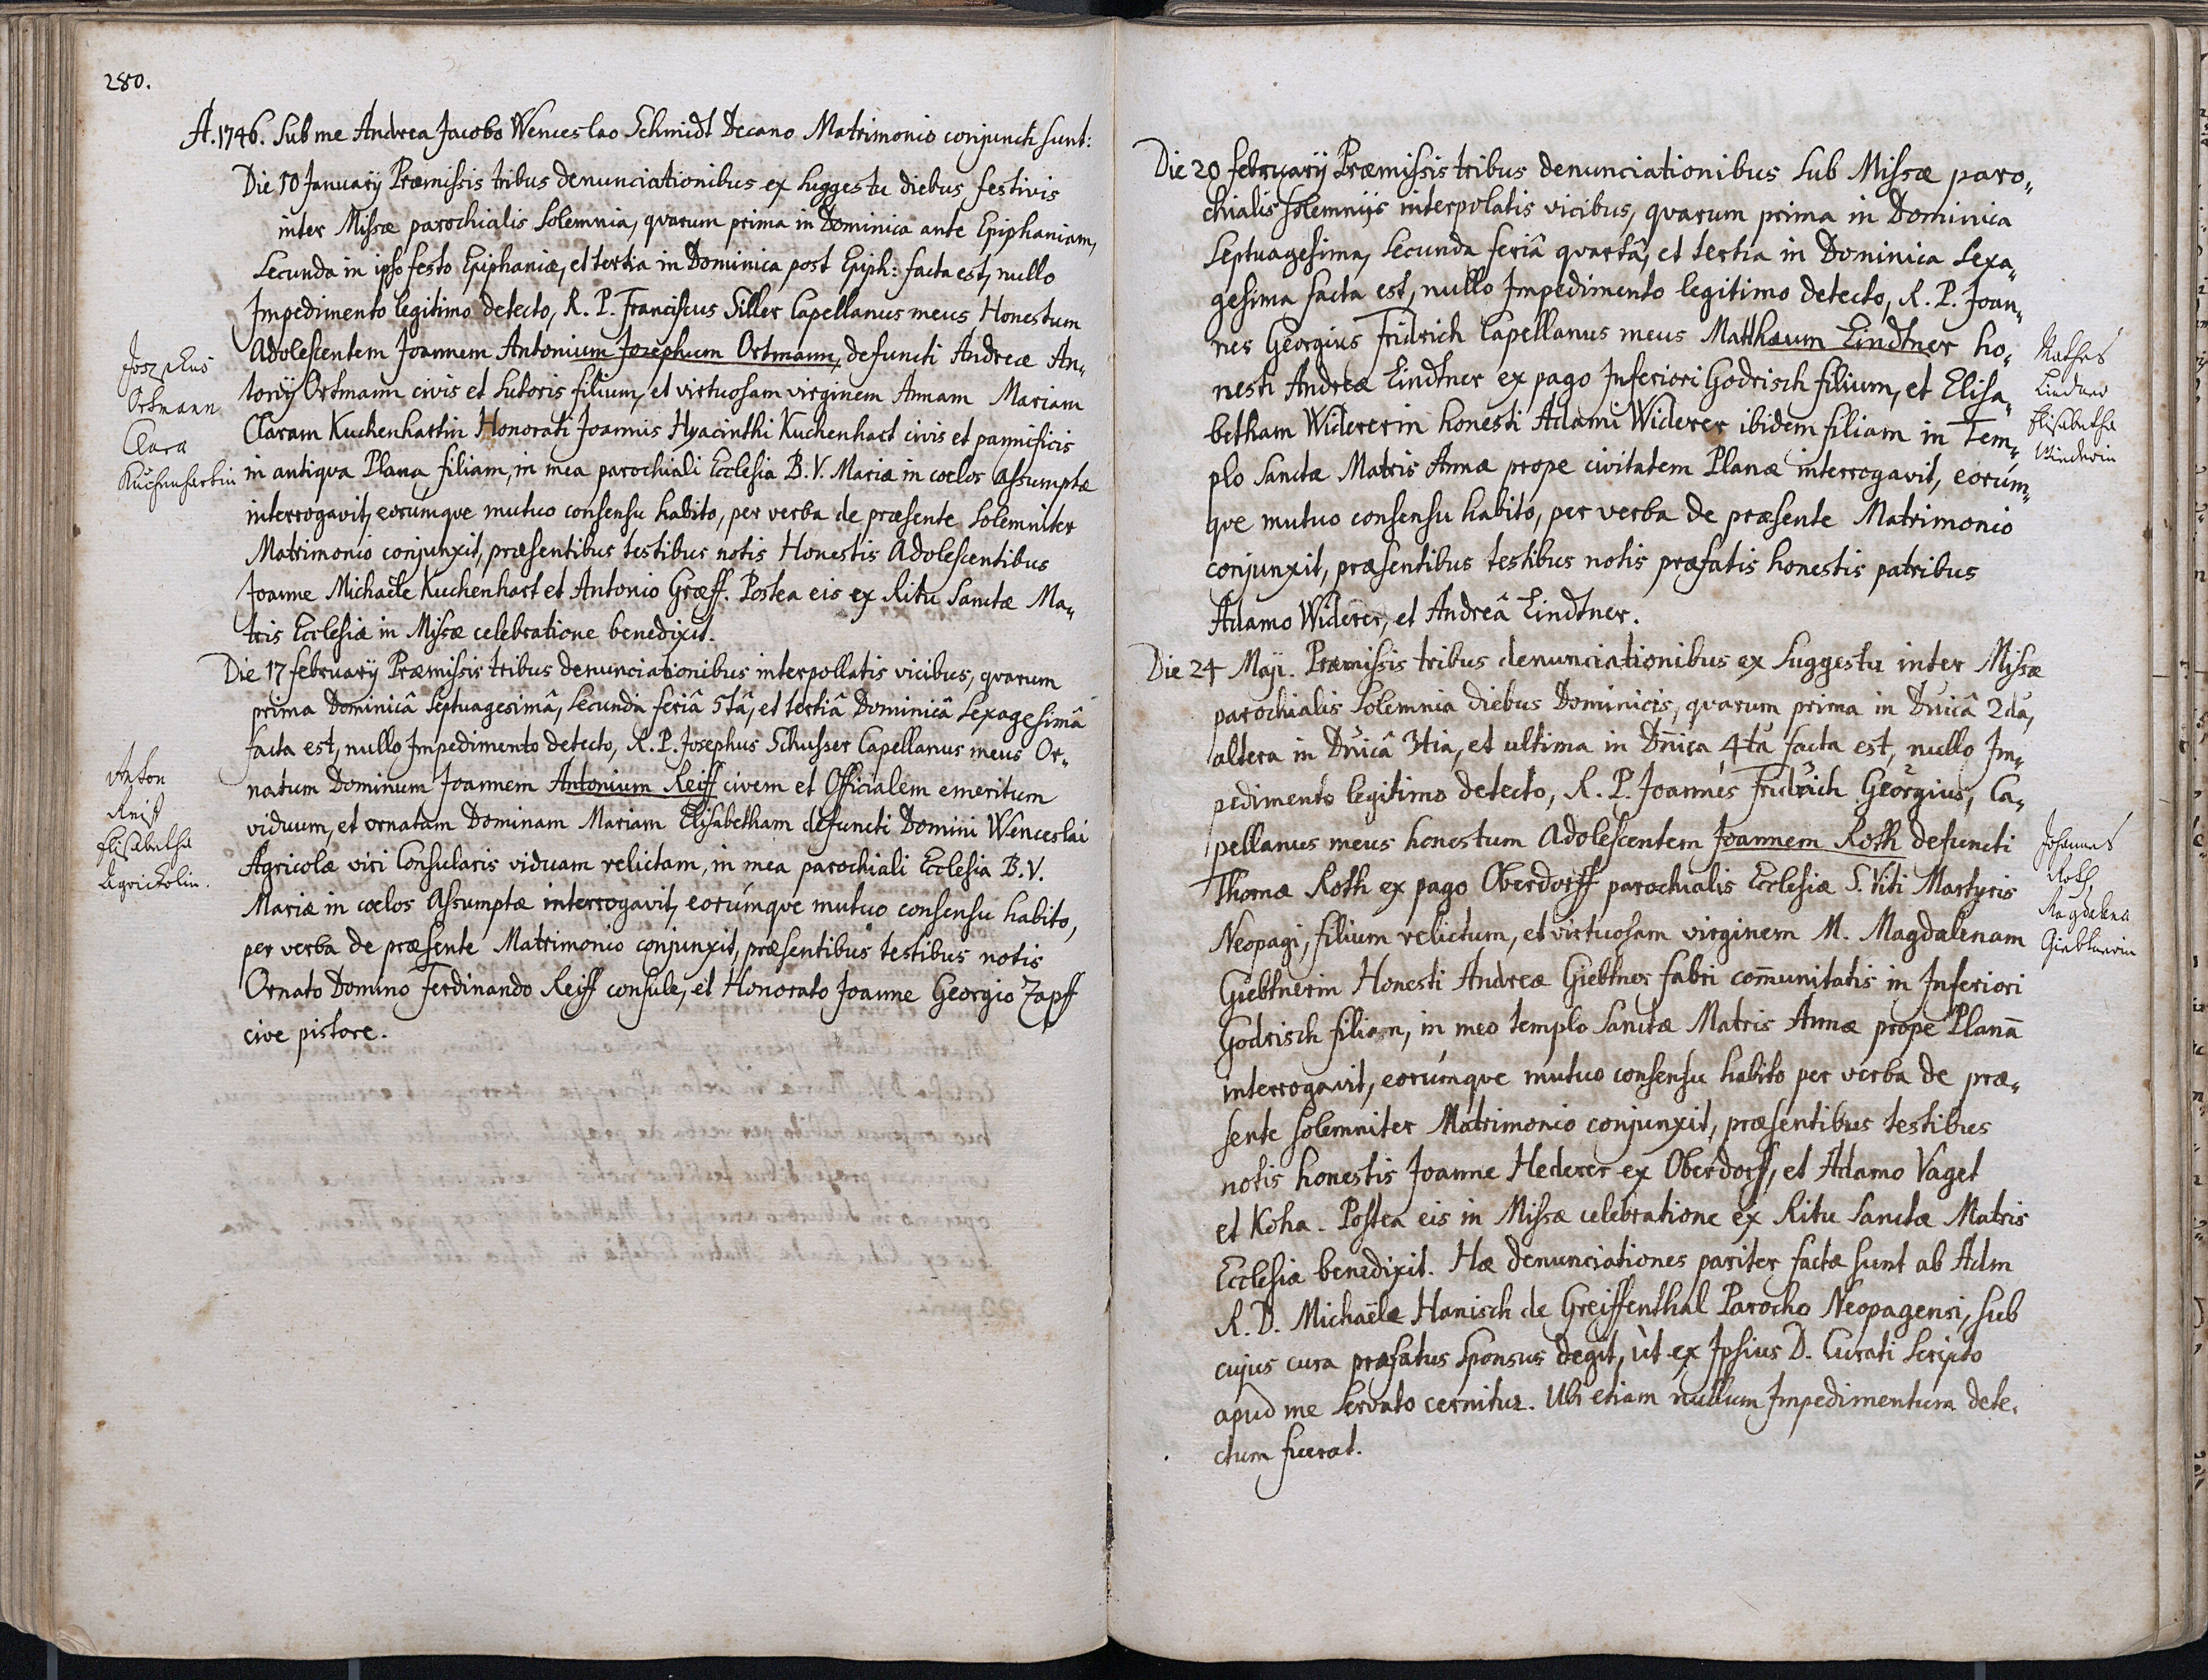 280.
A. 1746. Sub me Andrea Jacobo Wenceslao Schmidt Decano Matrimonio conjuncti sunt:
Die 10 Januarij Præmissis tribus denunciationibus ex suggestu diebus festivis
inter Missæ parochialis Solemnia, quarum prima in Dominica ante Epiphaniam,
Secunda in ipso festo Epiphaniæ, et tertia in Dominica post Epiph: facta est, nullo
Impedimento legitimo detecto, R. P. Franciscus Siller Capellanus meus Honestum
Adolescentem Joannem Antonium Josephum Ortmann, defuncti Andreæ An„
tonij Ortmann civis et Sutoris filium, et virtuosam virginem Annam Mariam
Claram Kuchenhartin Honorati Joannis Hyacinthi Kuchenhart civis et pannificis
in antiqva Plana filiam, in mea parochiali Ecclesia B. V. Mariæ in coelos Assumptæ
interrogavit, eorúmqve mutuo consensu habito, per verba de præsente Solemniter
Matrimonio conjunxit, præsentibus testibus notis Honestis Adolescentibus
Joanne Michaële Kuchenhart et Antonio Græff. Postea eis ex Ritu Sanctæ Ma„
tris Ecclesiæ in Missæ celebratione benedixit.
Josephus
Ortmann
Clara
Kuchenhartin
Die 17 february Præmissis tribus denunciationibus interpollatis vicibus, qvarum
prima Dominicâ Septuagesimâ, Secunda feriâ 5tâ, et tertiâ Dominicâ Sexagesimâ
facta est, nullo Impedimento detecto, R. P. Josephus Schusser Capellanus meus Or„
natum Dominum Joannem Antonium Reiff civem et Officialem emeritum
viduum, et ornatam Dominam Mariam Elisabetham defuncti Domini Wenceslai
Agricolæ viri Consularis viduam relictam, in mea parochiali Ecclesia B. V.
Mariæ in coelos Assumptæ interrogavit, eorúmqve mutuo consensu habito,
per verba de præsente Matrimonio conjunxit, præsentibus testibus notis
Ornato Domino Ferdinando Reiff consule, et Honorato Joanne Georgio Zapff
cive pistore.
Anton
Reiff
Elisabetha
Agrickolin.
Die 20 february Præmissis tribus denunciationibus Sub Missæ paro„
chialis solemnijs interpolatis vicibus, qvarum prima in Dominica
Septuagesima, Secunda feriâ qvartâ, et tertia in Dominica Sexa„
gesima facta est, nullo Impedimento legitimo detecto, R. P. Joan„
nes Georgius Fridrich Capellanus meus Matthæum Lindtner ho„
nesti Andreæ Lindtner ex pago Inferiori Godrisch filium, et Elisa„
betham Widererin honesti Adami Widerer ibidem filiam in Tem„
plo Sanctæ Matris Annæ prope civitatem Planæ interrogavit, eorúm„
qve mutuo consensu habito, per verba de præsente Matrimonio
conjunxit, præsentibus testibus notis præfatis honestis patribus
Adamo Widerer, et Andreâ Lindtner.
Mathes
Lindner
Elisabetha
Die 24 Maji. Præmissis tribus denunciationibus ex Suggestu inter Missæ
parochialis Solemnia diebus Dominicis, qvarum prima in Dnicâ 2da,
altera in Dnicâ 3tia, et ultima in Dnica 4ta facta est, nullo Im„
pedimento legitimo detecto, R. P. Joannes Fridrich Georgius, Ca„
pellanus meus honestum Adolescentem Joannem Roth defuncti
Thomæ Roth ex pago Oberdorff parochialis Ecclesiæ S. Viti Martyris
Neopagi, filium relictum, et virtuosam virginem M. Magdalenam
Giebtnerin Honesti Andreæ Giebtner fabri com̄unitatis in Inferiori
Godrisch filiam, in meo templo Sanctæ Matris Annæ prope Planā
interrogavit, eorúmqve mutuo consensu habito per verba de præ„
sente solemniter Matrimonio conjunxit, præsentibus testibus
notis honestis Joanne Hederer ex Oberdorff, et Adamo Vaget
et Koha. Postea eis in Missæ celebratione ex Ritu Sanctæ Matris
Ecclesiæ benedixit. Hæ denunciationes pariter factæ sunt ab Adm
R. D. Michaële Hanisch de Greiffenthal Parocho Neopagensi, sub
cujus cura præfatus Sponsus degit, ùt ex Ipsius D. Curati Scripto
apud me Servato cernitur. Ubi etiam nullum Impedimentum dete„
ctum fuerat.
Johannes
Roth
Magdalena
Giebtnerin